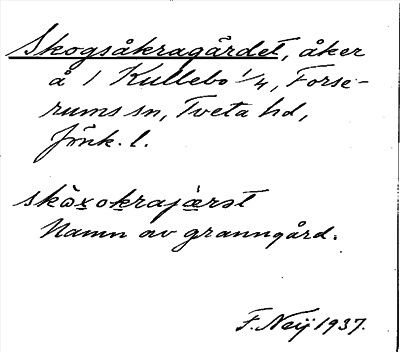 Skogsåkragärdet, åker
å 1 Kullebo 1/4, Forse-
rums sn, Tveta hd,
Jönk. l.
skòxokrajæ̀rət
Namn av granngård.
F. Neij 1937.